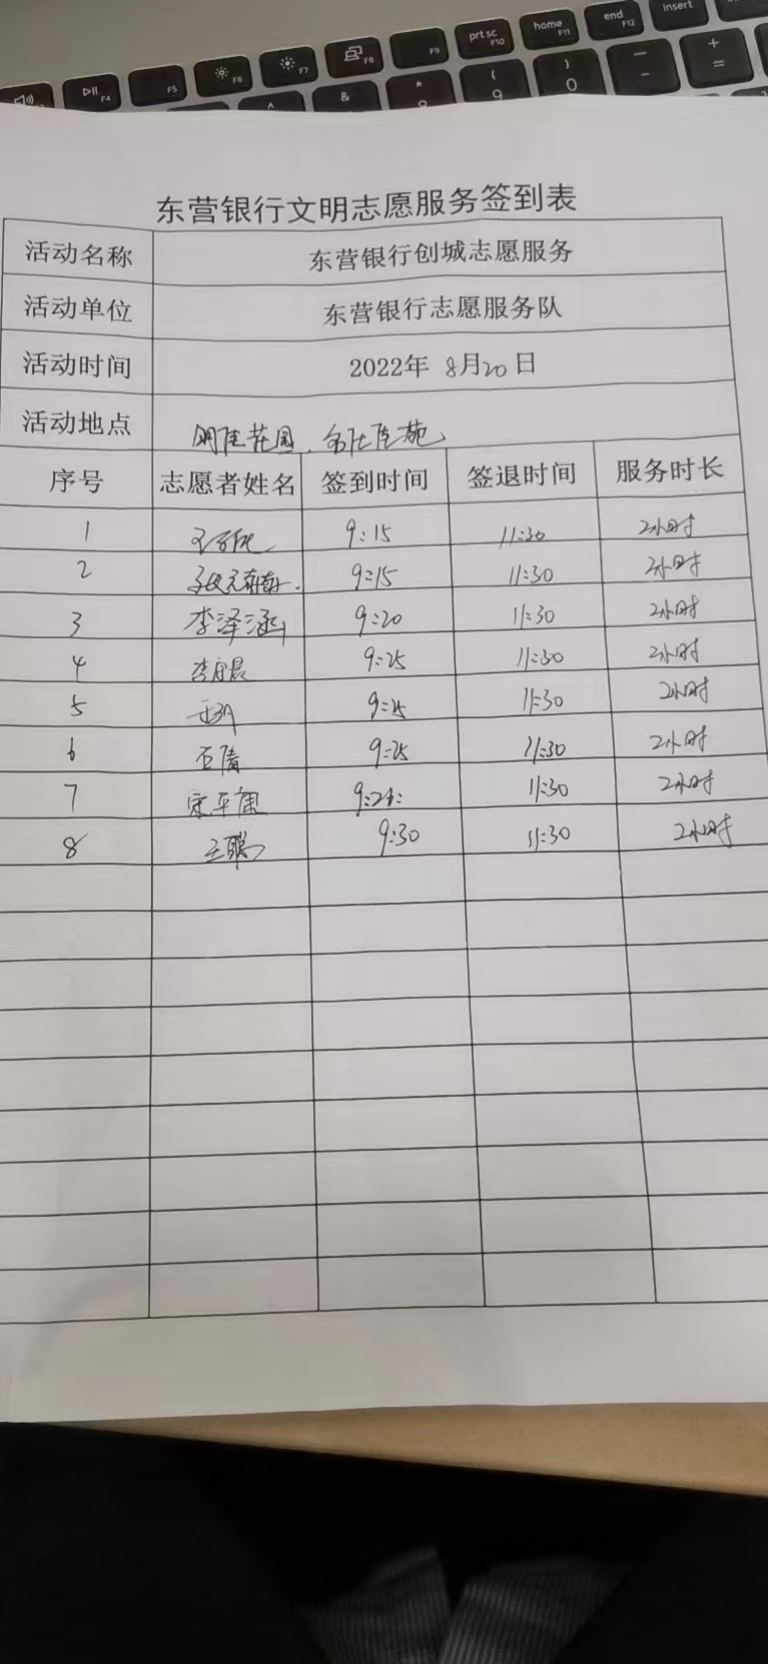 prt sc F10
home F11
end F12
insert
F4
F5
F6
F7
F8
F9
&
*
(
9
)
0
-
+
=
东营银行文明志愿服务签到表
活动名称 东营银行创城志愿服务
活动单位 东营银行志愿服务队
活动时间 2022年 8月20日
活动地点
序号 志愿者姓名 签到时间 签退时间 服务时长
1 9:15 11:30 2小时
2 9:15 11:30 2小时
3 李泽涵 9:20 11:30 2小时
4 9:25 11:30 2小时
5 9:25 11:30 2小时
6 9:25 11:30 2小时
7 11:30 2小时
8 9:30 11:30 2小时